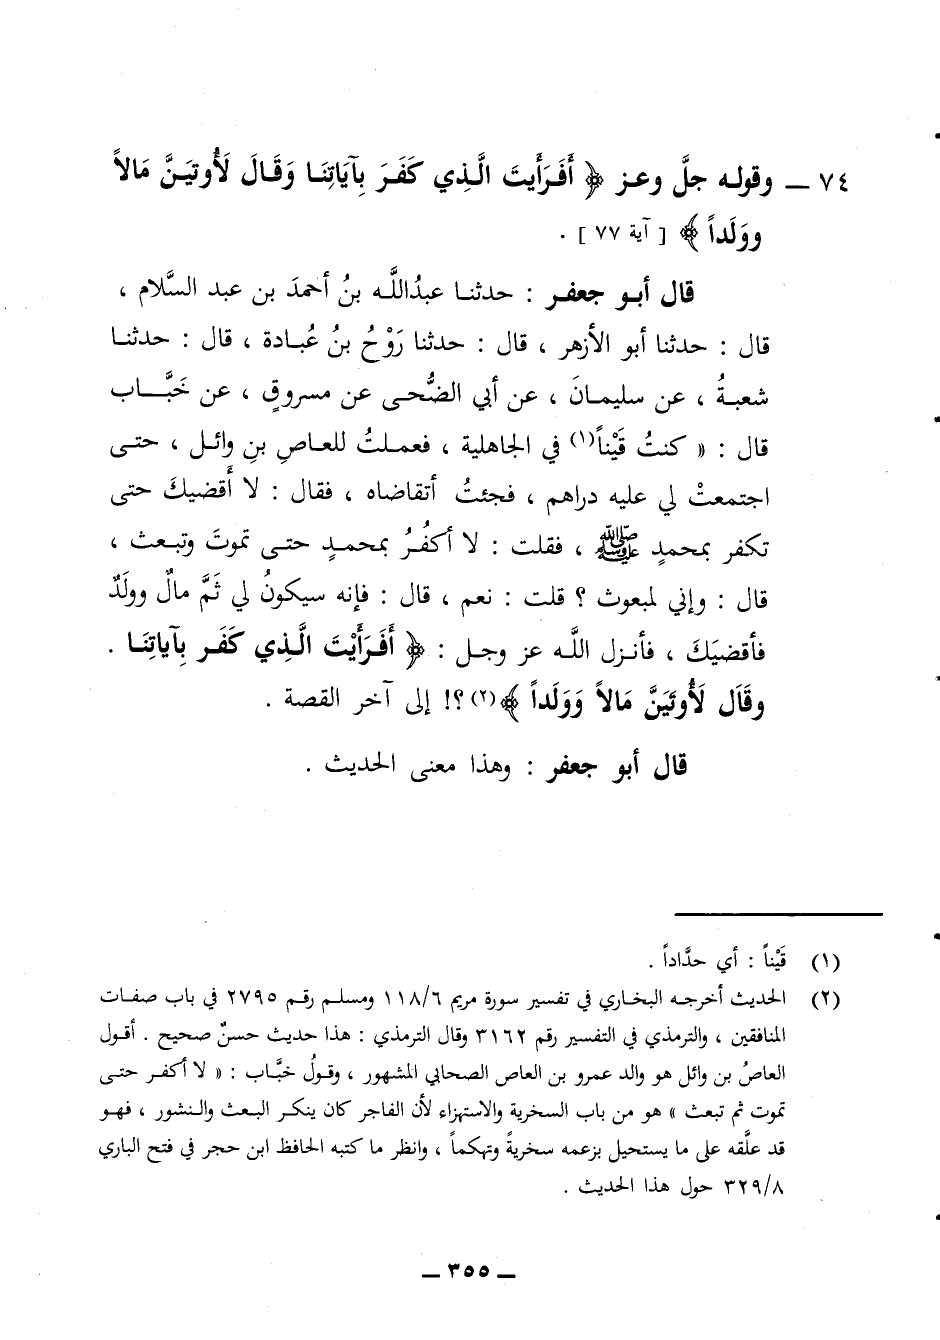 ٧٤ ــ وقوله جلَّ وعز ﴿ أَفَرَأَيتَ الَّذِي كَفَرَ بِآيَاتِنَا وَقَالَ لَأُوتيَنَّ مَالاً
ووَلَداً ﴾ [ آية ٧٧ ] .
قال أبو جعفر : حدثنا عبدُاللَّه بنُ أحمدَ بن عبد السَّلام ،
قال : حدثنا أبو الأزهر ، قال : حدثنا رَوْحُ بنُ عُبادة ، قال : حدثنا
شعبةُ ، عن سليمانَ ، عن أبي الضُّحى عن مسروقٍ ، عن خَبَّاب
قال : « كنتُ قَيْناً(١) في الجاهلية ، فعملتُ للعاصِ بنِ وائل ، حتى
اجتمعتْ لي عليه دراهم ، فجئتُ أتقاضاه ، فقال : لا أَقضيكَ حتى
تكفر بمحمدٍ ﷺ ، فقلت : لا أكفُرُ بمحمدٍ حتى تموتَ وتبعث ،
قال : وإني لمبعوث ؟ قلت : نعم ، قال : فإنه سيكونُ لي ثَمَّ مالٌ وولَدٌ
فأقضيَكَ ، فأنزل اللَّه عز وجل : ﴿ أَفَرَأَيْتَ الَّذِي كَفَر بِآياتِنَا .
وقَال لَأُوتَيَنَّ مَالاً وَوَلَداً ﴾(٢) ؟! إلى آخر القصة .
قال أبو جعفر : وهذا معنى الحديث .
(١) قَيْناً : أي حدَّاداً .
(٢) الحديث أخرجه البخاري في تفسير سورة مريم ١١٨/٦ ومسلم رقم ٢٧٩٥ في باب صفات
المنافقين ، والترمذي في التفسير رقم ٣١٦٢ وقال الترمذي : هذا حديث حسنٌ صحيح . أقول
العاصُ بن وائل هو والد عمرو بن العاص الصحابي المشهور ، وقولُ خبَّاب : « لا أكفر حتى
تموت ثم تبعث » هو من باب السخرية والاستهزاء لأن الفاجر كان ينكر البعث والنشور ، فهو
قد علَّقه على ما يستحيل بزعمه سخريةً وتهكماً ، وانظر ما كتبه الحافظ ابن حجر في فتح الباري
٣٢٩/٨ حول هذا الحديث .
ــ ٣٥٥ ــ